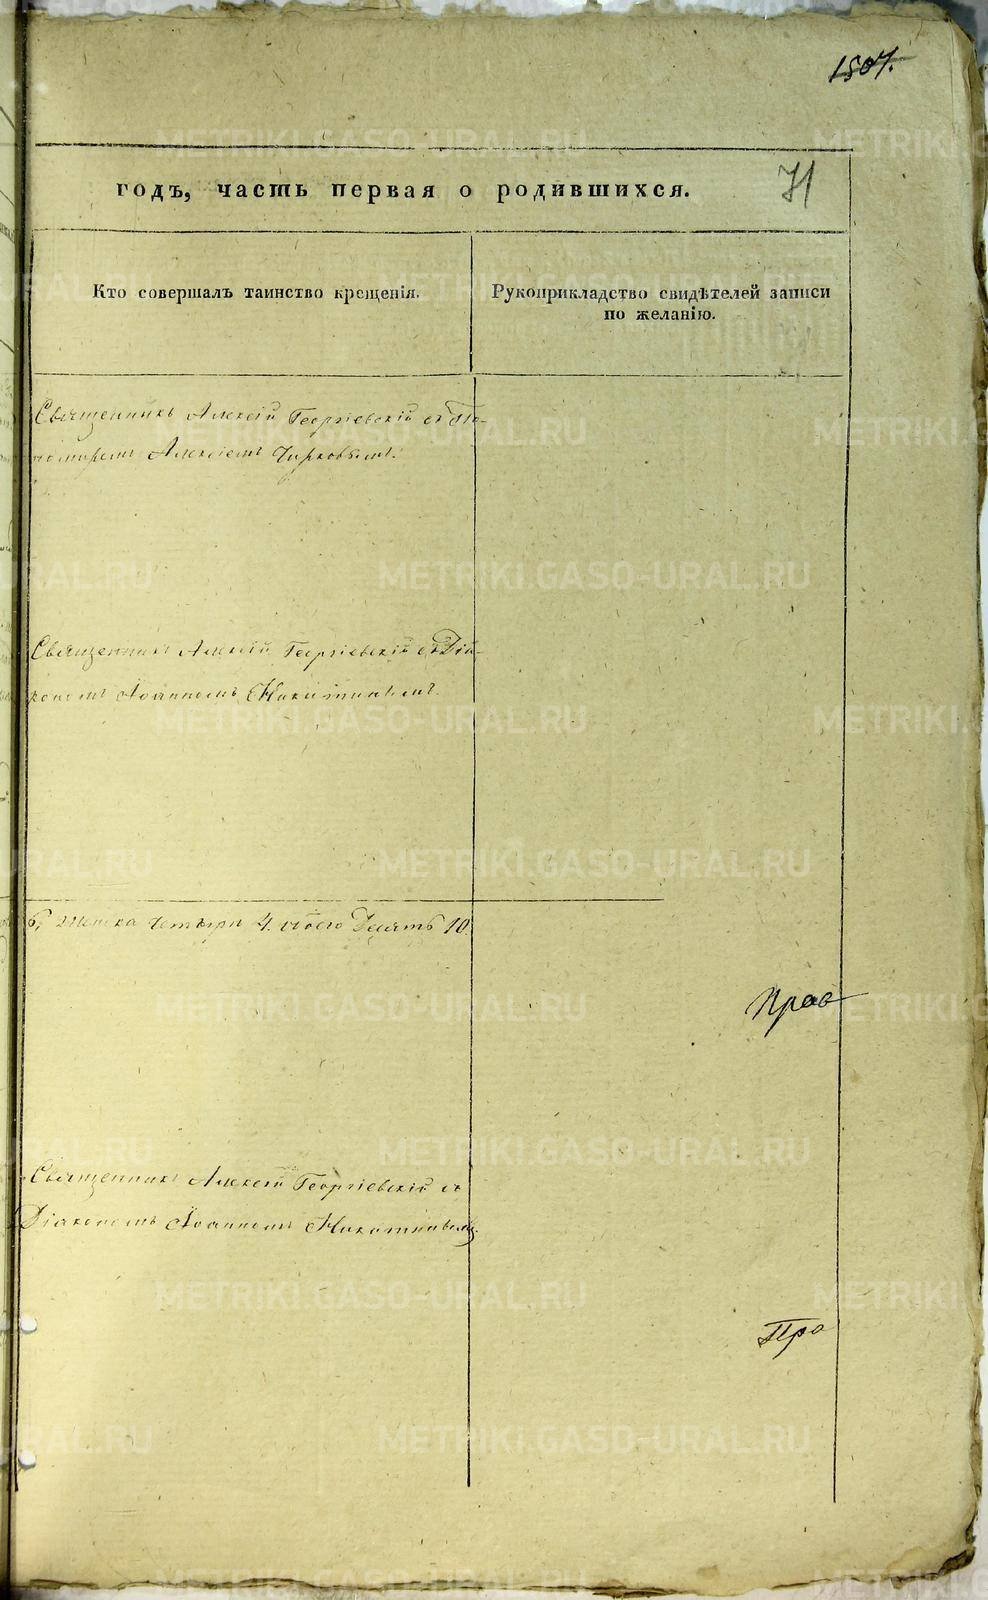 1507.
годъ, часть первая о родившихся.
71
Кто совершалъ таинство крещенія.
Рукоприкладство свидѣтелей записи
по желанію.
Священникъ Алексій Георгіевскій съ По-
номаремъ Алексіемъ Чирковымъ.
Священникъ Алексій Георгіевскій съ Діа-
кономъ Іоанномъ Никитинымъ.
6, женска четыри 4. обоего Десять 10.
Прав
Священникъ Алексій Георгіевскій съ
Діакономъ Іоанномъ Никитинымъ.
Пра
METRIKI.GASO-URAL.RU